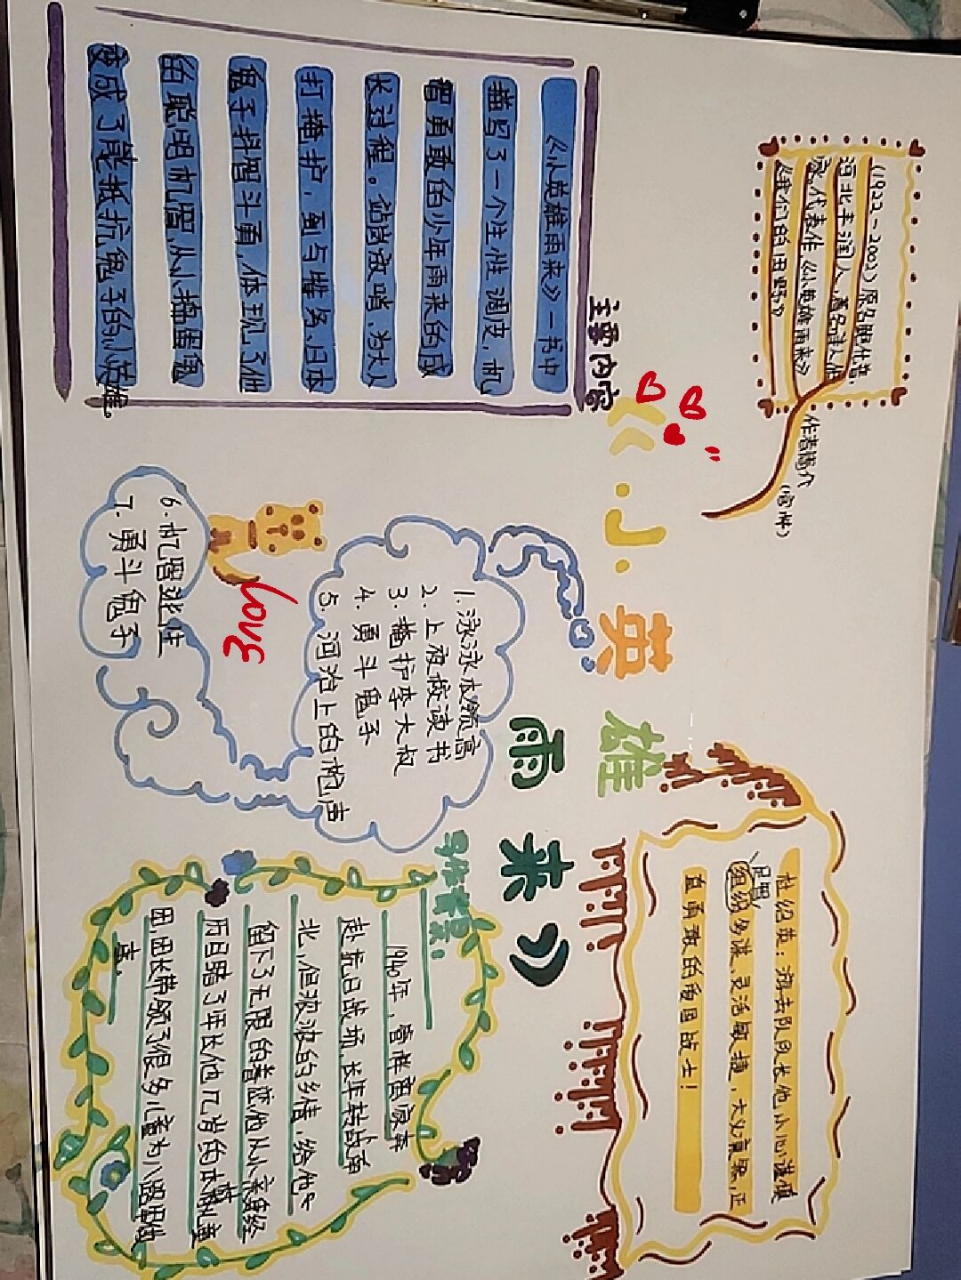 《小英雄雨来》
作者简介
(管桦)
(1922-2002)原名鲍化普,
河北丰润人,著名诗人、作
家,代表作《小英雄雨来》
《我们的田野》
主要内容
《小英雄雨来》一书中
描写了一个生性调皮,机
智勇敢的少年雨来的成
长过程。站岗放哨,为大人
打掩护,到与鬼子
鬼子抖智斗勇,体现了他
的聪明机智,从小
变成了能抵抗鬼子的小英雄。
1.游泳本领高
2.上夜校读书
3.掩护李大叔
4.勇斗鬼子
5.河沿上的枪声
6.机智逃生
7.勇斗鬼子
love
杜绍英:游击队队长他小心谨慎
足智
多谋,灵活敏捷,大义凛然,正
直勇敢的爱国战士!
写作背景:
1940年,管桦离家奔
赴抗日战场,长年转战南
北,但浪波的乡情,给他
留下了无限的眷恋他从小亲身经
历目睹了年长他几岁的
团团长带领了很多儿童为八路军